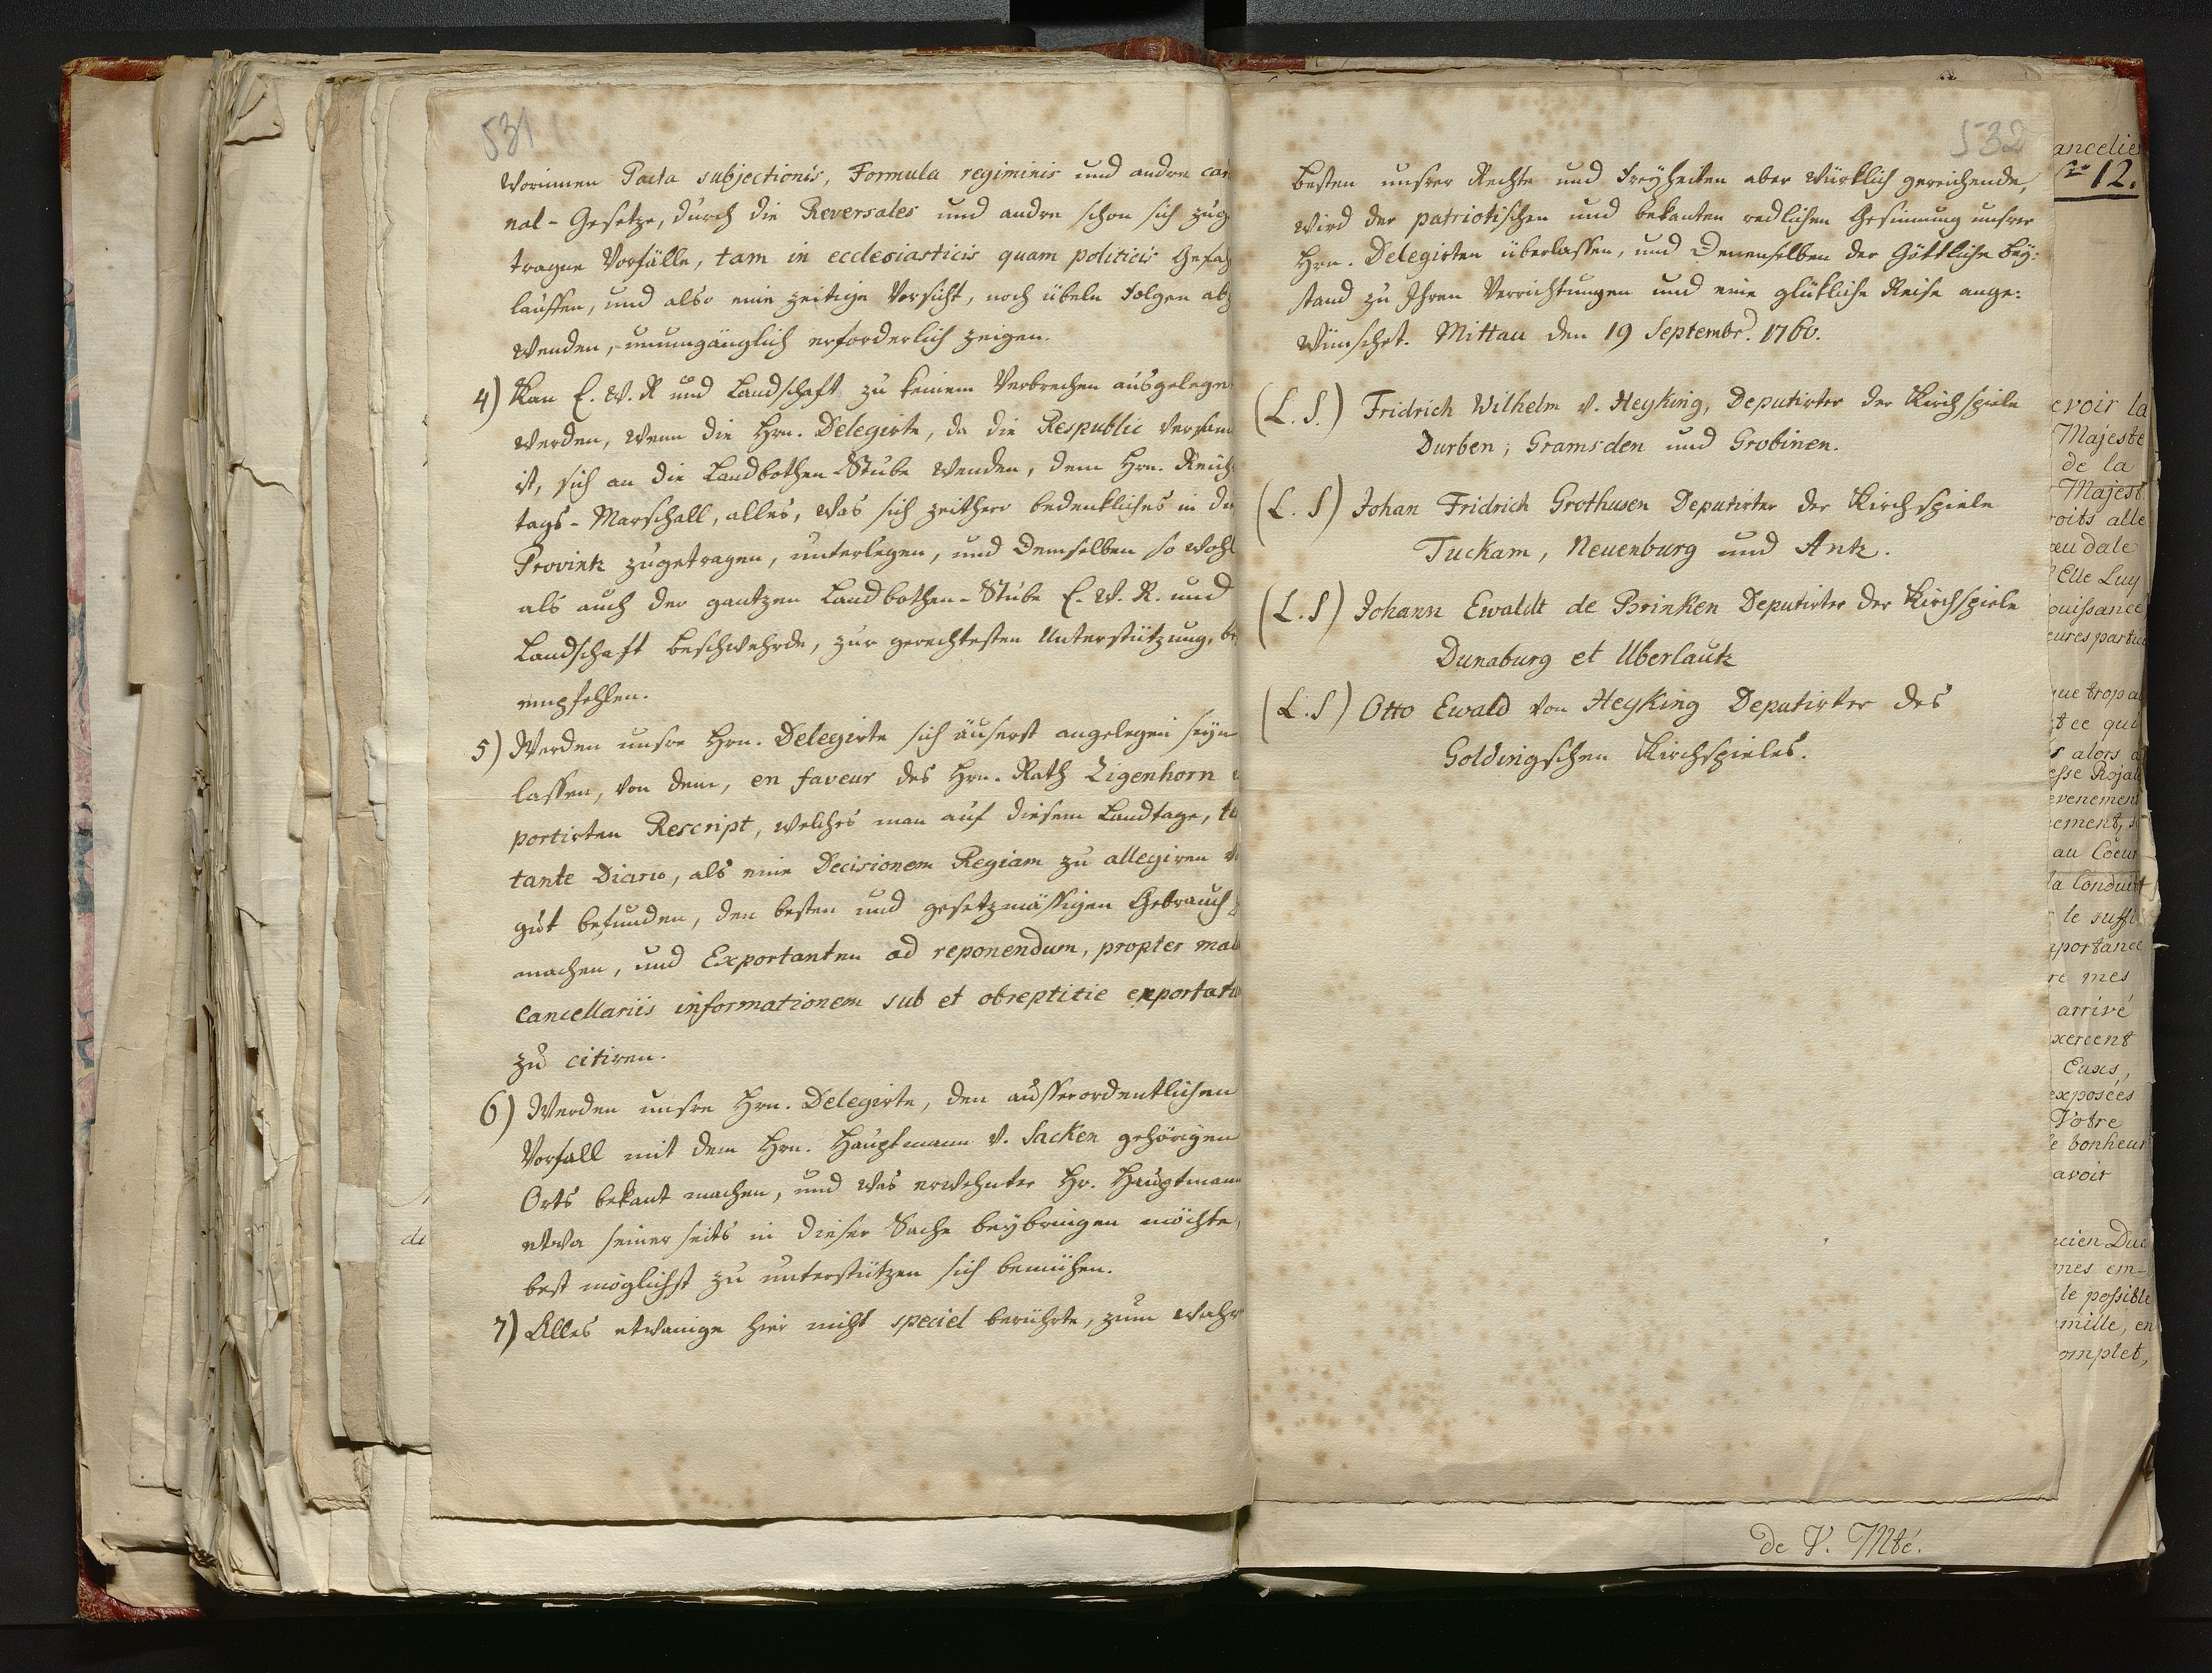 531
worinnen Pacta subjectionis, Formula regiminis und andre car
nal-Gesetze, durch die Reversales und andre schon sich zuge
tragne Vorfälle, tam in ecclesiasticis quam politicis Gefah
lauffen, und also eine zeitige Vorsicht, noch übeln Folgen abz
wenden, unumgänglich erforderlich zeigen.
4) Kan E. W. R und Landschaft zu keinem Verbrechen ausgelegen
werden, wenn die Hrn. Delegirte, da die Respublic versam
ist, sich an die Landbothen-Stube wenden, dem Hrn. Reichs
tags-Marschall, alles, was sich zeithero bedenkliches in die
Provintz zugetragen, unterlegen, und Demselben so wohl
als auch der gantzen Landbothen-Stube E. W. R. und
Landschaft Beschwehrde, zur gerechtesten Unterstützung, be
empfehlen.
5) Werden unsre Hrn. Delegirte sich äuserst angelegen seyn
lassen, von dem, en faveur des Hrn. Rath Zigenhorn e
portirten Rescript, welches man auf diesem Landtage, te
tante Diario, als eine Decisionem Regiam zu allegiren
gut befunden, den besten und gesetzmässigen Gebrauch z
machen, und Exportanten ad reponendum, propter mal
cancellariis informationem sub et obreptitie exportatu
zu citiren.
6) Werden unsre Hrn. Delegirte, den ausserordentlichen
Vorfall mit dem Hrn. Hauptmann v. Sacken gehörigen
Orts bekant machen, und was erwehnter Hr. Hauptmann
etwa seiner seits in dieser Sache beybringen möchte,
best möglichst zu unterstützen sich bemühen.
7) Alles etwanige hier nicht speciel berührte, zum wahr
de
532
Besten unsrer Rechte und Freyheiten aber würklich gereichende,
wird der patriotischen und bekanten redlichen Gesinnung unsrer
Hrn. Delegirten überlassen, und Denenselben der Göttliche Bey:
stand zu Ihren Verrichtungen und eine glükliche Reise ange:
wünschet. Mittau den 19 Septembr. 1760.
(L. S.) Fridrich Wilhelm v. Heyking, Deputirter der Kirchspiele
Durben, Gramsden und Grobinen.
(L. S) Johan Fridrich Grothusen Deputirter der Kirchspiele
Tuckam, Neuenburg und Antz.
(L. S) Johann Ewaldt de Brinken Deputirter der Kirchspiele
Dunaburg et Uberlautz
(L. S) Otto Ewald von Heyking Deputirter des
Goldingschen Kirchspieles.
ancelie
12.
evoir la
Majesté
de la
Majest
roits alle
eu dale
Elle Luy
ouissance
eures partic
que trop a
t ce qui
s alors a
esse Rojale
evenement
ement, s
au Coeur
la Conduit
le suffi
portance
re mes
arrivé
xercent
Eaux,
exposées
Votre
le bonheur
avoir
cien Duc
mes em-
le possible
mille, en
omplet,
de V. Mté.